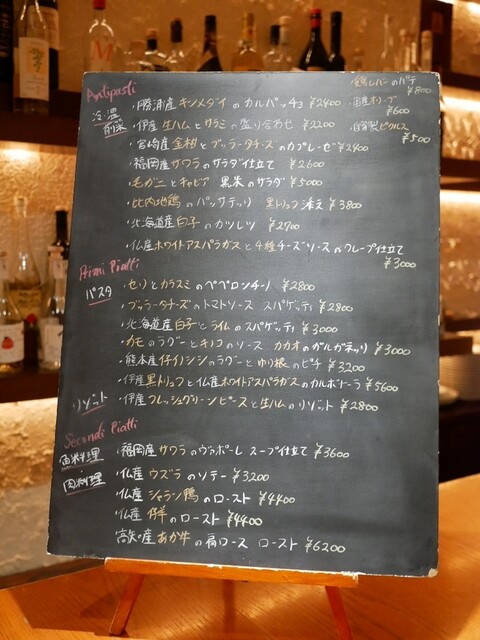 Antipasti
冷・温
前菜
・勝浦産 キンメダイのカルパッチョ ¥2400
・伊産 生ハムとサラミの盛り合わせ ¥2200
・宮崎産 金柑とブッラータチーズのカプレーゼ ¥2400
・福岡産 サワラのサラダ仕立て ¥2600
・毛ガニとキャビア 黒米のサラダ ¥5000
・比内地鶏のパッサテッリ 黒トリュフ添え ¥3800
・北海道産 白子のカツレツ ¥2700
・仏産ホワイトアスパラガスと4種チーズソースのクレープ仕立て
¥3000
・鶏レバーのパテ
¥800
・国産オリーブ
¥600
・自家製ピクルス
¥500
Primi Piatti
パスタ
・セリとカラスミのペペロンチーノ ¥2800
・ブッラータチーズのトマトソース スパゲッティ ¥2800
・北海道産白子とライムのスパゲッティ ¥3000
・カモのラグーとキノコのソース カカオのガルガネッリ ¥3000
・熊本産仔イノシシのラグーとゆり根のピチ ¥3200
・伊産黒トリュフと仏産ホワイトアスパラガスのカルボナーラ ¥5600
リゾット
・伊産フレッシュグリーンピースと生ハムのリゾット ¥2800
Secondi Piatti
魚料理
・福岡産 サワラのヴァポーレ スープ仕立て ¥3600
肉料理
・仏産 ウズラのソテー ¥3200
・仏産 シャラン鴨のロースト ¥4400
・仏産 仔羊のロースト ¥4400
・高知産 あか牛の肩ロース ロースト ¥6200